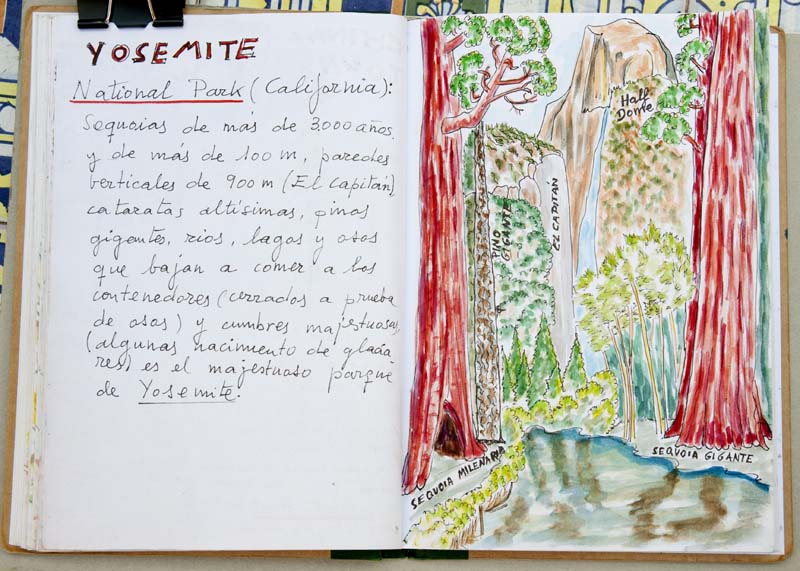 YOSEMITE
National Park (California):
Sequoias de más de 3.000 años
y de más de 100 m, paredes
verticales de 900 m (El Capitán)
cataratas altísimas, pinos
gigentes, rios, lagos y osos
que bajan a comer a los
contenedores (cerrados a prueba
de osos) y cumbres majestuosas,
(algunas nacimiento de glacia
res) es el majestuoso parque
de Yosemite.
Half
Dome
PINO
GIGANTE
EL CAPITÁN
SEQUOIA MILENARIA
SEQUOIA GIGANTE